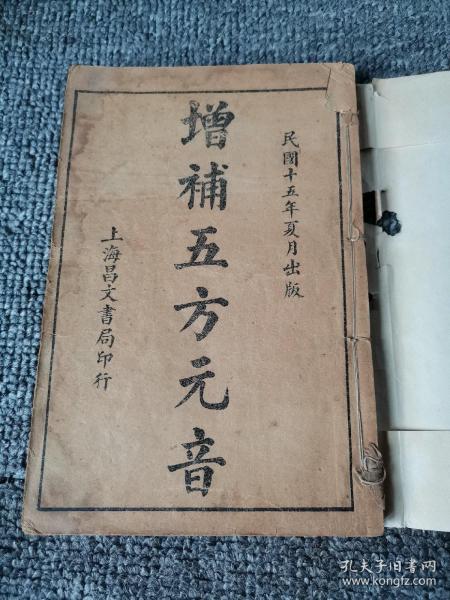 民國十五年夏月出版
增補五方元音
上海昌文書局印行
孔夫子旧书网
www.kongfz.com